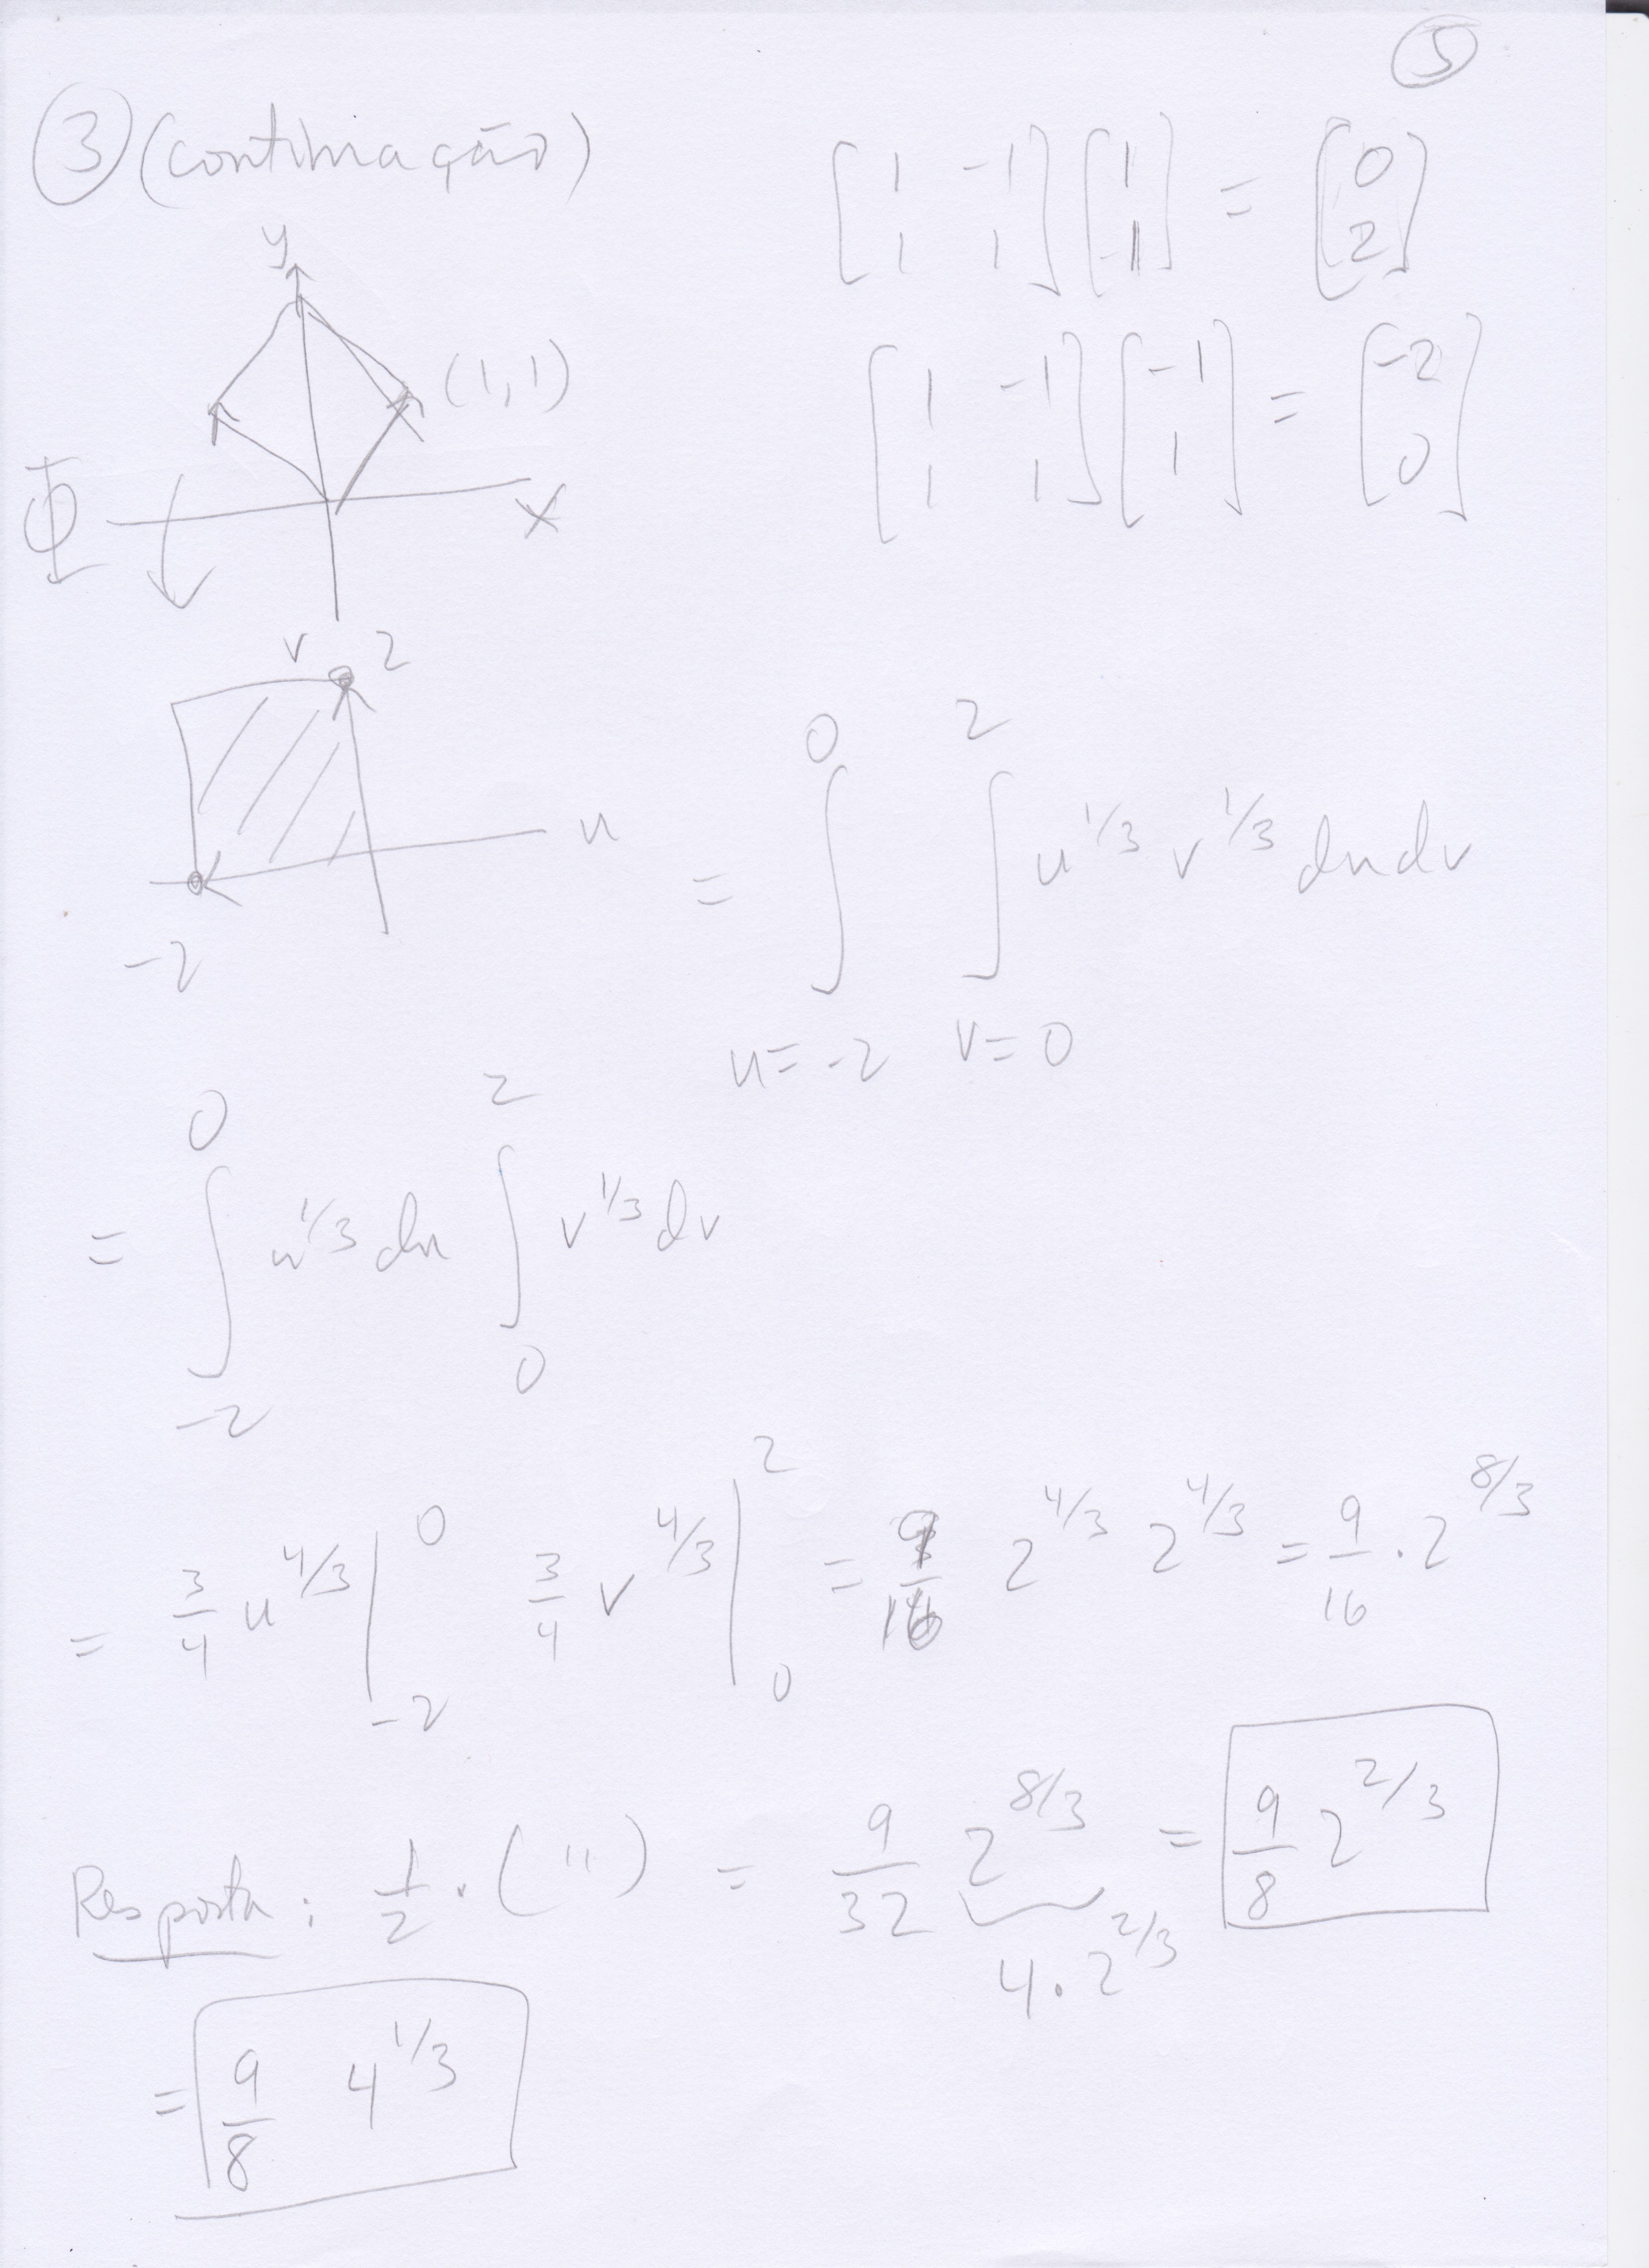 5
3 (continuação)
[1 -1; 1 1] [1; 1] = [0; 2]
y
(1,1)
[1 -1; 1 1] [-1; 1] = [-2; 0]
Φ
x
v 2
u
-2
= ∫_{u=-2}^{0} ∫_{v=0}^{2} u^{1/3} v^{1/3} du dv
= ∫_{-2}^{0} u^{1/3} du ∫_{0}^{2} v^{1/3} dv
= 3/4 u^{4/3} |_{-2}^{0} 3/4 v^{4/3} |_{0}^{2} = 9/16 2^{4/3} 2^{4/3} = 9/16 · 2^{8/3}
Resposta: 1/2 · ( " ) = 9/32 2^{8/3} = 9/8 2^{2/3}
4 · 2^{2/3}
= 9/8 4^{1/3}